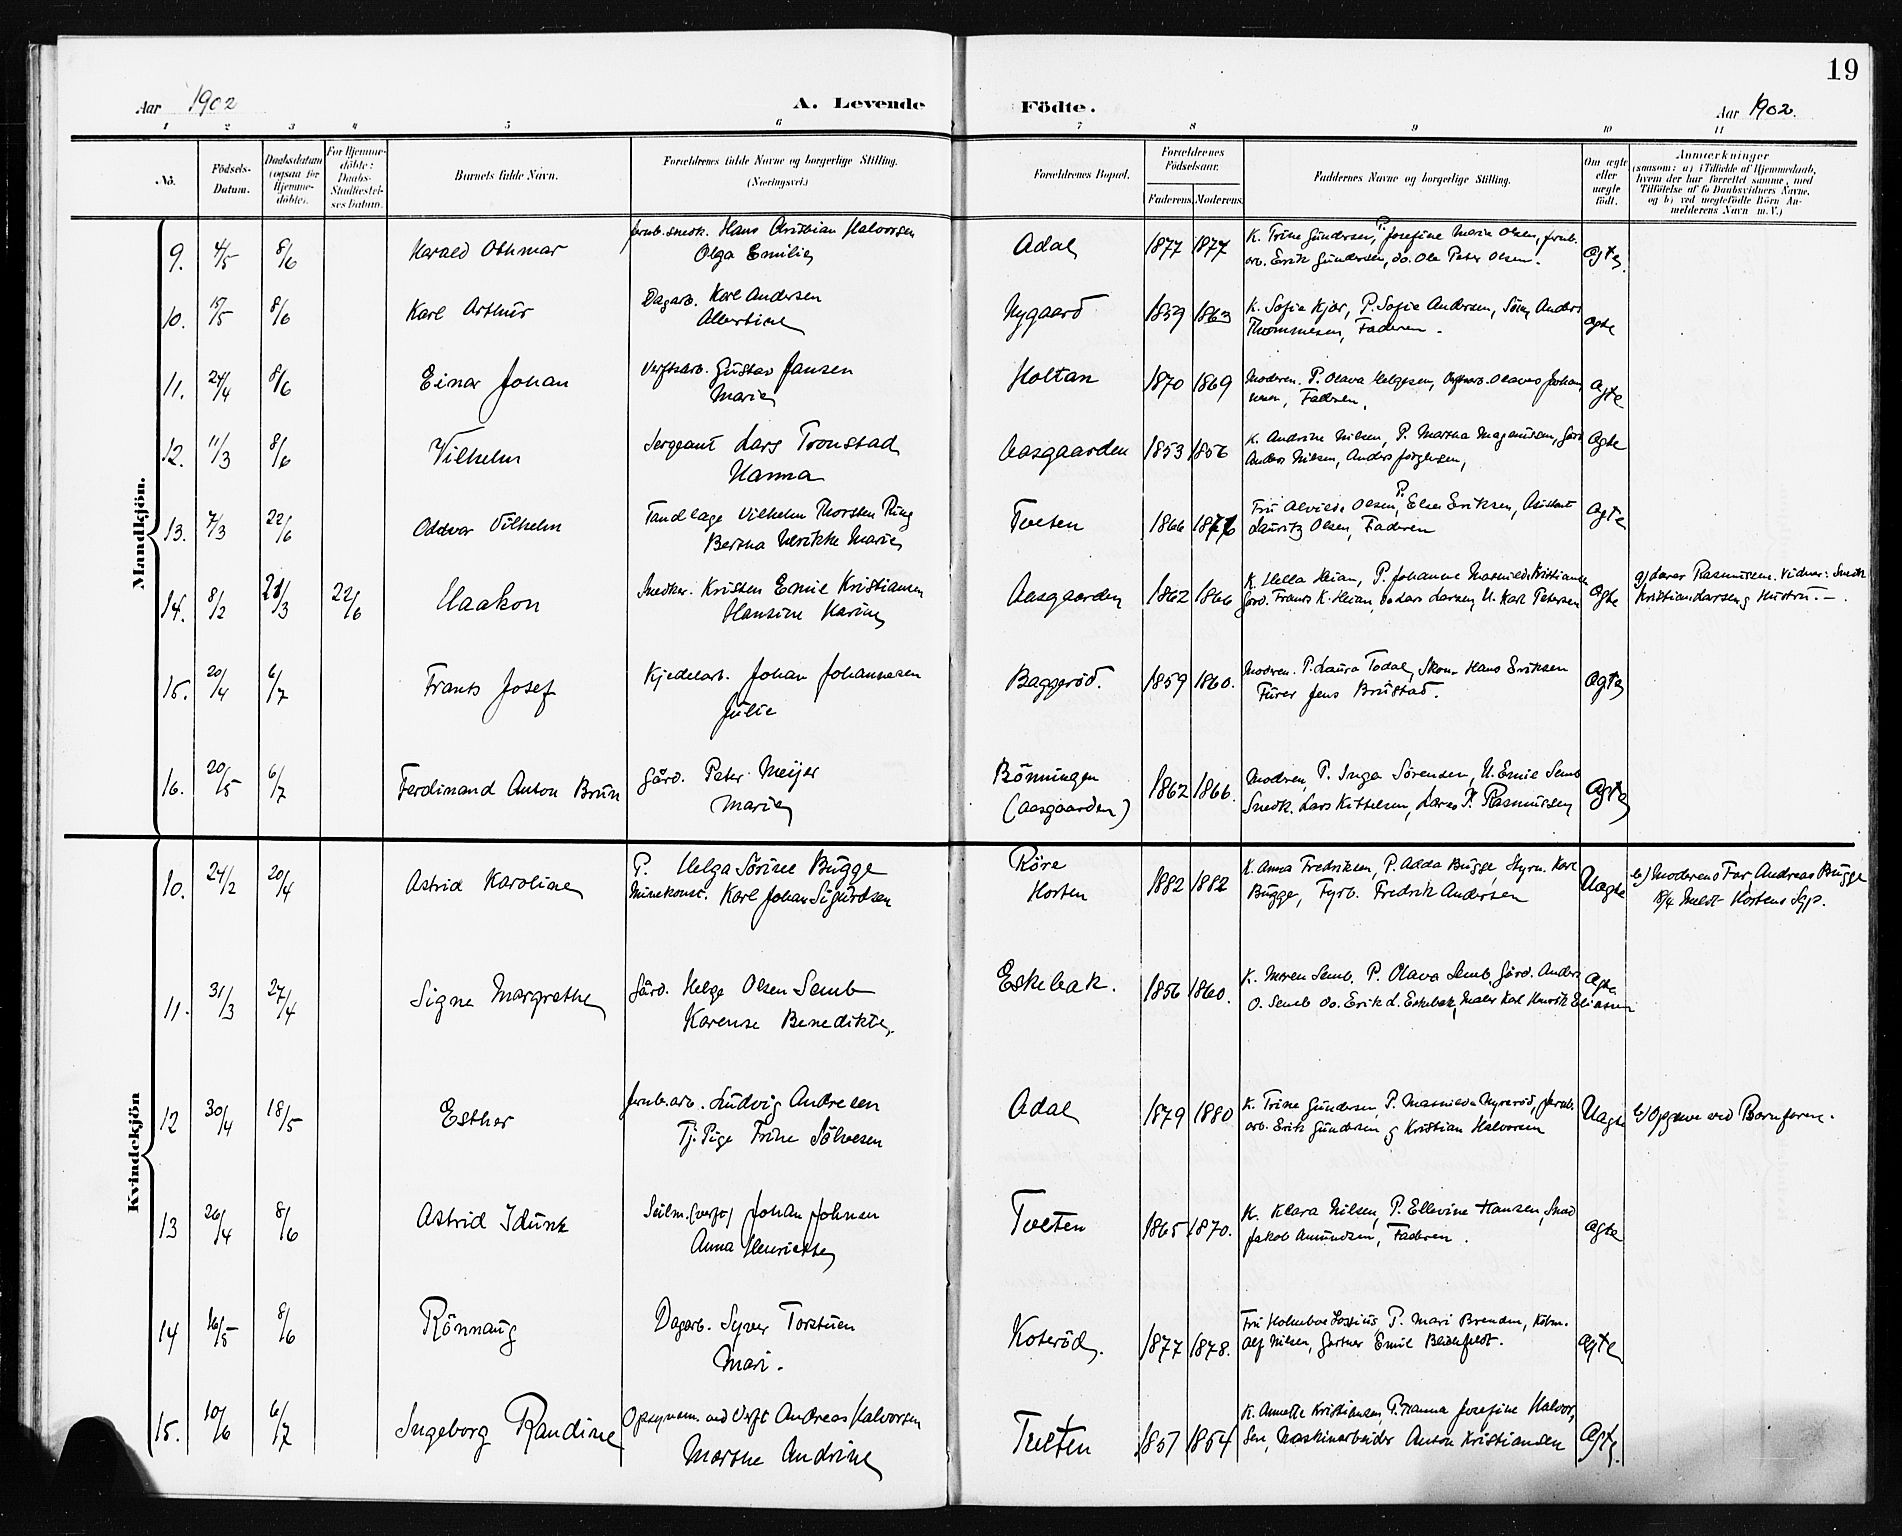 19
Aar 1902
A. Levende Födte.
Aar 1902.
1 2 3 4 5 6 7 8 9 10 11
Nö.
Födsels-
Datum.
Daabsdatum
(ogsaa for
Hjemme-
döbte).
For Hjemme-
döbte:
Daabs-
Stadfæstel-
ses Datum.
Barnets fulde Navn.
Forældrenes fulde Navne og borgerlige Stilling.
(Næringsvei.)
Forældrenes Bopæl.
Forældrenes
Födselsaar.
Faderens. Moderens.
Faddernes Navne og borgerlige Stilling.
Om ægte
eller
uægte
födt.
Anmærkninger
(saasom: a) i Tilfælde af Hjemmedaab,
hvem der har forrettet samme, med
Tilföielse af to Daabsvidners Navne,
og b) ved uægtefödte Börn An-
melderens Navn m. V.)
Mandkjön.
9. 4/5 8/6 Harald Othmar
Jernb. snedk. Hans Kristian Halvorsen
Olga Emilie
Adal 1877 1877
K. Trine Gundersen, P. Josefine Marie Olsen, Jernb.
arb. Erik Gundersen, do. Ole Peter Olsen.
ægte
10. 15/5 8/6 Karl Arthur
Dagarb. Karl Andersen
Albertine
Nygaard 1859 1863
K. Sofie Kjær, P. Sofie Andersen, Søm. Anders
Thommesen, Faderen.
ægte
11. 24/4 8/6 Einar Johan
Verftsarb. Gustav Jansen
Marie
Holtan 1870 1869
Moderen. P. Olava Helgesen, Olaves Johan
nesen, Faderen.
ægte
12. 11/3 8/6 Vilhelm
Sergeant Lars Tronstad
Hanna
Aasgaarden 1853 1856
K. Andrine Nilsen, P. Martha Magnussen, Gård.
Anders Nilsen, Anders Jörgensen,
ægte
13. 7/3 22/6 Oddvar Vilhelm
Tandlæge Vilhelm Thorsten Ring
Bertha Ulrikke Marie
Tveten 1866 1876
Fru Alvilde Olsen, P. Elise Eriksen, Assistent
Lauritz Olsen, Faderen
ægte
14. 8/2 21/3 22/6 Haakon
Snedker. Kristen Emil Kristiansen
Hansine Karine
Aasgaarden 1862 1866
K. Hella Heian, P. Johanne Mathilde Kristiansen
Gård. Frants K. Heian, do Lars Larsen, U. Karl Petersen
ægte
a) Lærer Rasmussen. Vidner: Snedk
Kristian Larsen og Hustru. —.
15. 20/4 6/7 Frants Josef
Kjedelarb. Johan Johannesen
Julie
Baggeröd. 1859 1860.
Moderen. P. Laura Todal, Skom. Hans Eriksen
Furer Jens Brustad.
ægte
16. 20/5 6/7 Ferdinand Anton Brun
Gård. Peter Meijer
Marie
Bönningen
(Aasgaarden)
1862 1866.
Moderen, P. Inga Sörensen, U. Emil Semb
Snedk. Lars Kittelsen, Lærer P. Rasmussen
ægte
Kvindekjön
10. 24/2 20/4 Astrid Karoline
P. Helga Sörine Bugge
Minekonst. Karl Johan Sigurdsen
Röre
Horten
1882 1882
K. Anna Fredriksen, P. Adda Bugge, Styrm. Karl
Bugge, Fyrb. Fredrik Andersen
Uægte
b) Moderens Far, Andreas Bugge
18/4 Meldt Hortens Sgp.
11. 31/3 27/4 Signe Margrethe
Gård. Helge Olsen Semb
Karense Benedikte.
Eskebæk. 1856 1860.
K. Maren Semb. P. Olava Semb. Gård. Anders
O. Semb do. Erik L. Eskebæk, Maler Karl Henrik Eliassen
ægte
12 30/4 18/5 Esther
Jernb. arb. Ludvig Andresen
Tj. Pige Trine Sölvesen
Adal 1879 1880
K. Trine Gundersen, P. Mathilde Nyeröd, Jernb.
arb. Erik Gundersen og Kristian Halvorsen
Uægte
b) Opgave ved Barnefaren.
13 26/4 8/6 Astrid Idunn
Seilm. (Verft) Johan Johnsen
Anna Henriette
Tveten 1865 1870.
K. Klara Nilsen, P. Ellevine Hansen, Smed
Jakob Amundsen, Faderen.
ægte
14 16/5 8/6 Rönnaug
Dagarb. Syver Torstuen
Mari.
Koteröd. 1877 1878.
Fru Holmboe Lossius, P. Mari Brenden, Köbm.
Alf Nilsen, Gartner Emil Bleikfeldt.
ægte
15. 10/6 6/7 Ingeborg Randine
Opsynsm. ved Verft Andreas Halvorsen
Marthe Andrine
Tveten 1857 1854
K. Annette Kristiansen, P. Hanna Josefine Halvor,
sen, Maskinarbeider Anton Kristiansen
ægte.